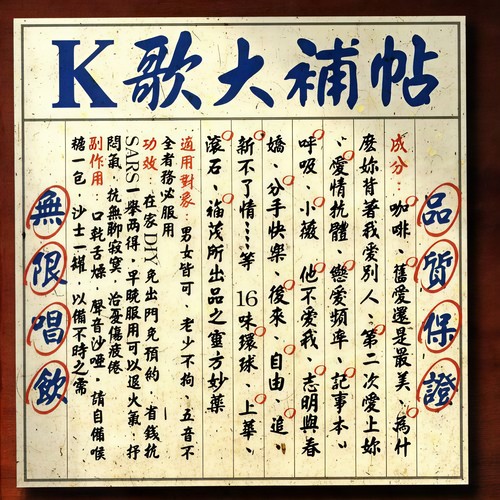 K歌大補帖
品質保證
成分：咖啡、舊愛還是最美、為什
麼妳背著我愛別人、第二次愛上妳
、愛情抗體、戀愛頻率、記事本、
呼吸、小薇、他不愛我、志明與春
嬌、分手快樂、後來、自由、追、
新不了情……等16味環球、上華、
滾石、福茂所出品之靈方妙藥
適用對象　男女皆可　老少不拘　五音不
全者務必服用
功效　在家DIY免出門免預約　省錢抗
SARS一舉兩得，早晚服用可以退火氣，抒
悶氣，抗無聊寂寞，治憂傷疲倦
副作用　口乾舌燥　聲音沙啞，請自備喉
糖一包　沙士一罐，以備不時之需
無限唱飲